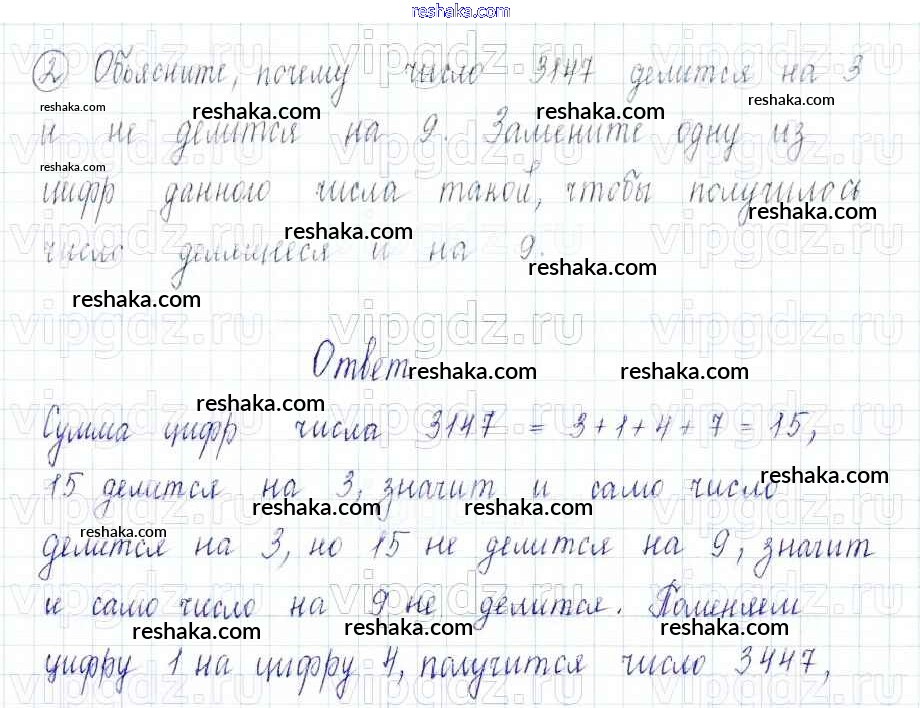 reshaka.com
② Объясните, почему число 3147 делится на 3
reshaka.com reshaka.com reshaka.com reshaka.com
и не делится на 9. Замените одну из
reshaka.com
цифр данного числа такой, чтобы получилось
reshaka.com reshaka.com
число делящееся и на 9.
reshaka.com reshaka.com
vipgdz.ru vipgdz.ru vipgdz.ru
Ответ
reshaka.com reshaka.com
reshaka.com
Сумма цифр числа 3147 = 3+1+4+7 = 15,
reshaka.com
15 делится на 3, значит и само число
reshaka.com reshaka.com reshaka.com
делится на 3, но 15 не делится на 9, значит
vipgdz.ru vipgdz.ru vipgdz.ru
и само число на 9 не делится. Поменяем
reshaka.com reshaka.com reshaka.com
цифру 1 на цифру 4, получится число 3447,